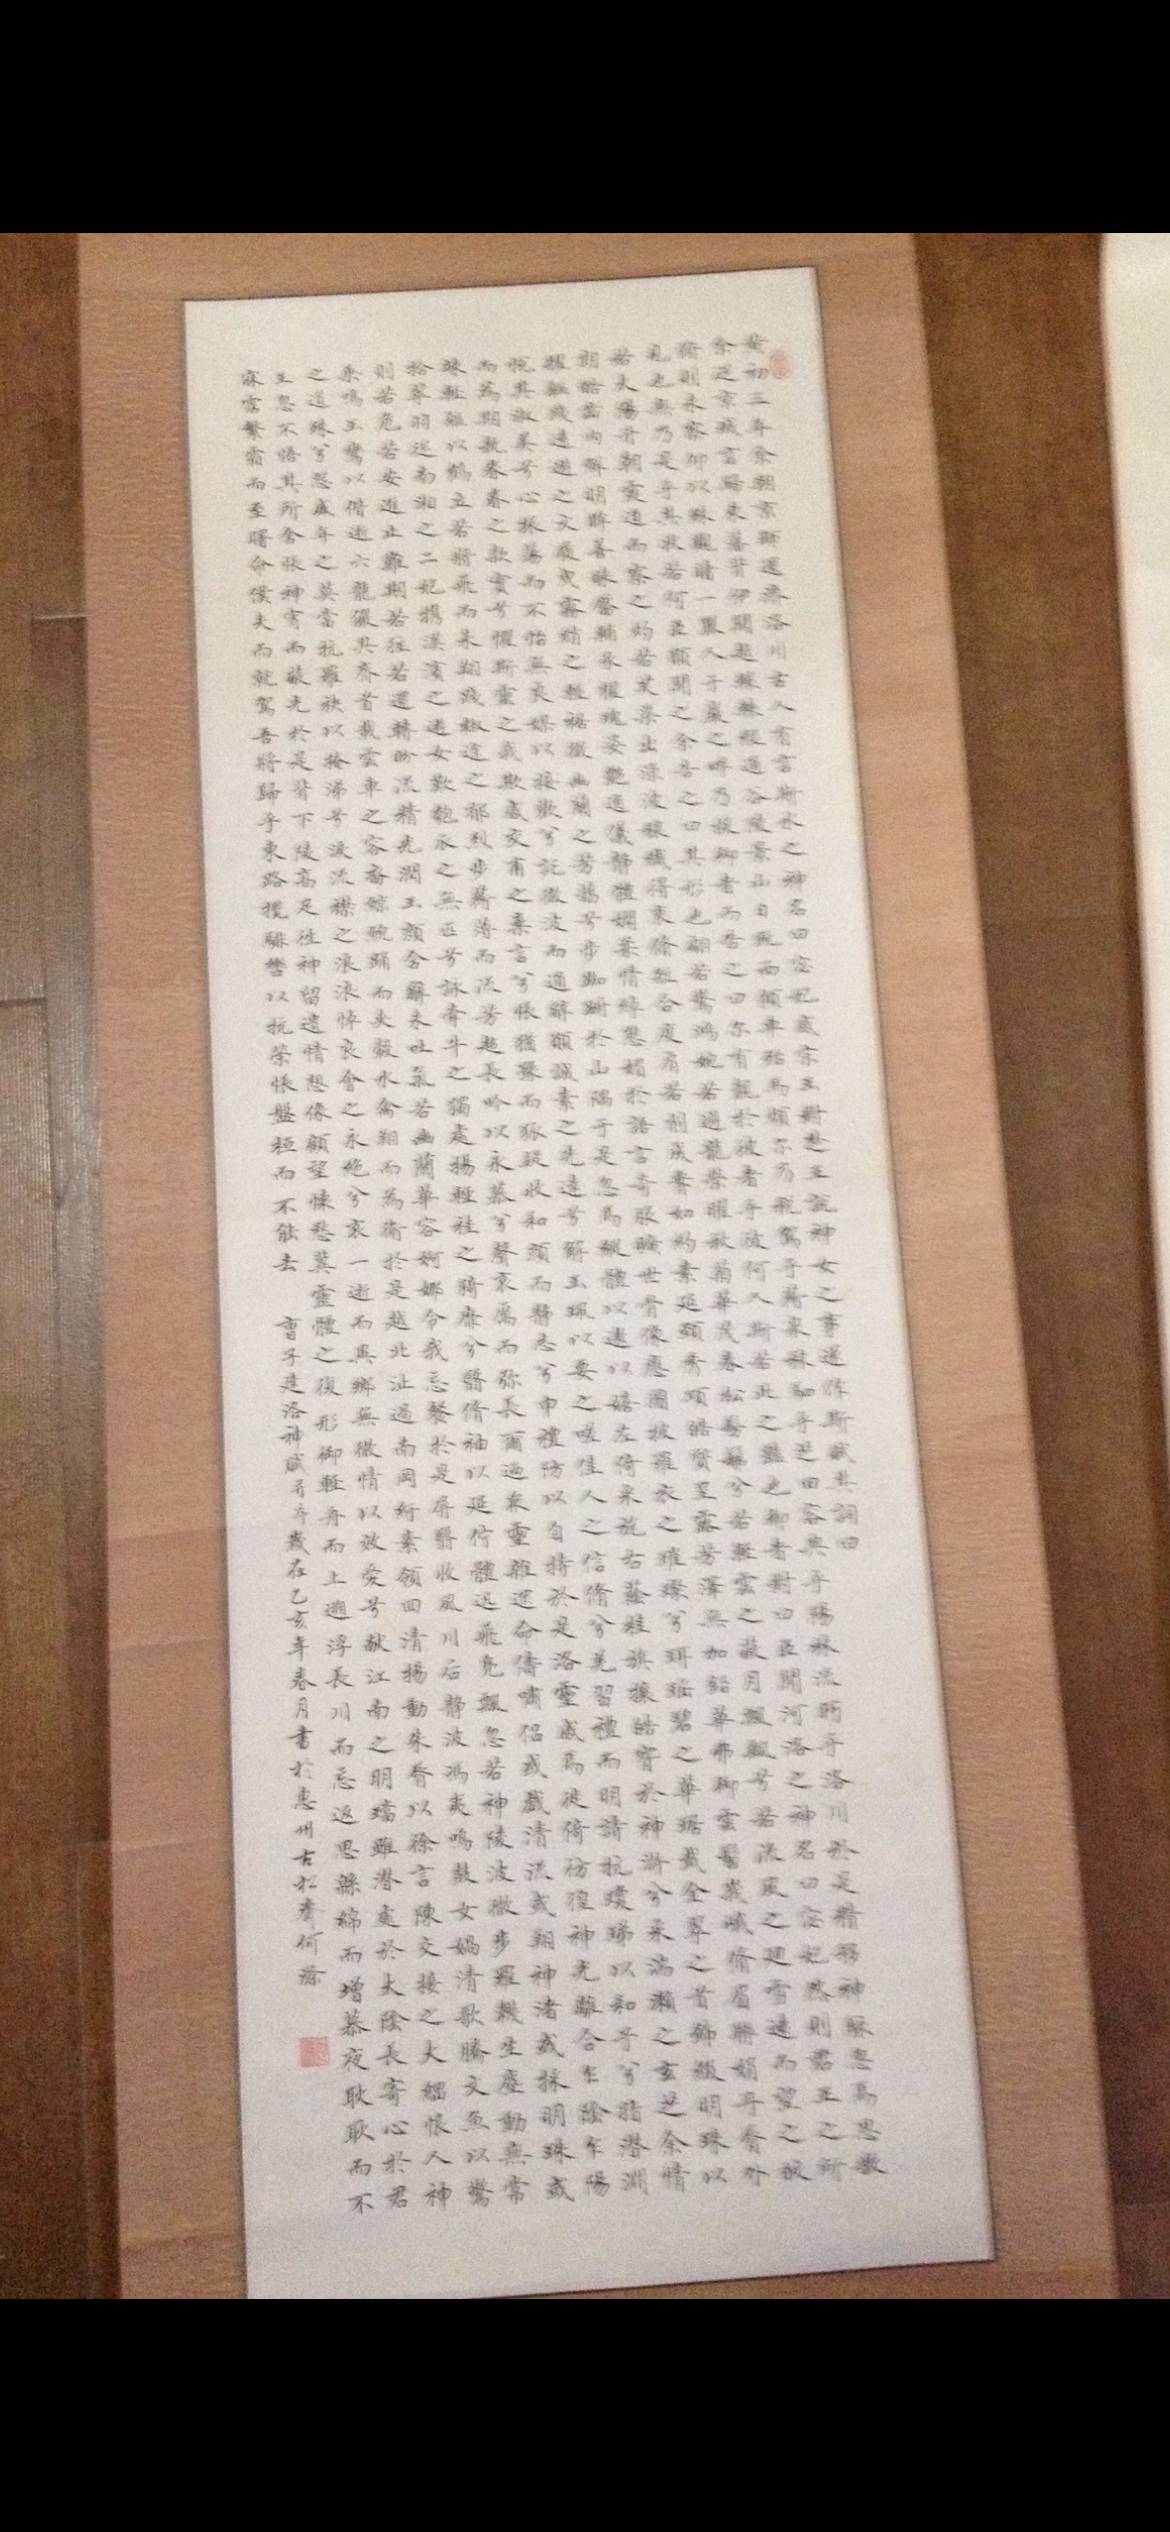 黃初三年余朝京師還濟洛川古人有言斯水之神名曰宓妃感宋玉對楚王說神女之事遂作斯賦其詞曰
余從京域言歸東藩背伊闕越轘轅經通谷陵景山日既西傾車殆馬煩尔乃稅駕乎蘅皋秣駟乎芝田容與乎陽林流眄乎洛川於是精移神駭忽焉思散
俯則未察仰以殊觀睹一麗人于巖之畔乃援御者而告之曰尔有覿於彼者乎彼何人斯若此之豔也御者對曰臣聞河洛之神名曰宓妃然則君王之所
見也無乃是乎其狀若何臣願聞之余告之曰其形也翩若驚鴻婉若遊龍榮曜秋菊華茂春松髣髴兮若輕雲之蔽月飄颻兮若流風之迴雪遠而望之皎
若太陽升朝霞迫而察之灼若芙蕖出淥波穠纖得衷脩短合度肩若削成腰如約素延頸秀項皓質呈露芳澤無加鉛華弗御雲髻峩峨脩眉聯娟丹脣外
朗皓齒內鮮明眸善睞靨輔承權瑰姿艷逸儀靜體嫻柔情綽態媚於語言奇服曠世骨像應圖披羅衣之璀璨兮珥瑤碧之華琚戴金翠之首飾綴明珠以
耀軀踐遠遊之文履曳霧綃之輕裾微幽蘭之芳藹兮步踟躕於山隅于是忽焉縱體以遨以嬉左倚采旄右蔭桂旗攘皓腕於神滸兮采湍瀨之玄芝余情
悅其淑美兮心振蕩而不怡無良媒以接歡兮託微波而通辭願誠素之先達兮解玉珮以要之嗟佳人之信脩兮羌習禮而明詩抗瓊珶以和予兮指潛淵
而為期執眷眷之款實兮懼斯靈之我欺感交甫之棄言兮悵猶豫而狐疑收和顏而靜志兮申禮防以自持於是洛靈感焉徙倚彷徨神光離合乍陰乍陽
竦輕軀以鶴立若將飛而未翔踐椒塗之郁烈步蘅薄而流芳超長吟以永慕兮聲哀厲而彌長爾迺眾靈雜遝命儔嘯侶或戲清流或翔神渚或採明珠或
拾翠羽從南湘之二妃攜漢濱之遊女歎匏瓜之無匹兮詠牽牛之獨處揚輕袿之猗靡兮翳脩袖以延佇體迅飛鳧飄忽若神陵波微步羅襪生塵動無常
則若危若安進止難期若往若還轉盼流精光潤玉顏含辭未吐氣若幽蘭華容婀娜令我忘餐於是屏翳收風川后靜波馮夷鳴鼓女媧清歌騰文魚以警
乘鳴玉鸞以偕逝六龍儼其齊首載雲車之容裔鯨鯢踴而夾轂水禽翔而為衛於是越北沚過南岡紆素領回清揚動朱脣以徐言陳交接之大綱恨人神
之道殊兮怨盛年之莫當抗羅袂以掩涕兮淚流襟之浪浪悼良會之永絕兮哀一逝而異鄉無微情以效愛兮献江南之明璫雖潛處於太陰長寄心於君
王忽不悟其所舍悵神宵而蔽光於是背下陵高足往神留遺情想像顧望懷愁冀靈體之復形御輕舟而上遡浮長川而忘返思緜綿而增慕夜耿耿而不
寐霑繁霜而至曙命僕夫而就駕吾將歸乎東路攬騑轡以抗策悵盤桓而不能去 曹子建洛神賦 歲在乙亥年春月書於惠州古松齋何